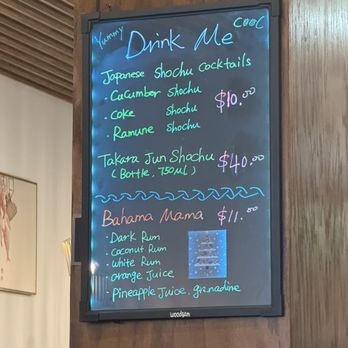 Yummy
COOL
Drink Me
Japanese Shochu Cocktails
· Cucumber Shochu
· Coke Shochu $10.00
· Ramune Shochu
Takara Jun Shochu $40.00
(Bottle, 750ML)
Bahama Mama $11.00
· Dark Rum
· Coconut Rum
· White Rum
· Orange Juice
· Pineapple Juice, grenadine
woodsam